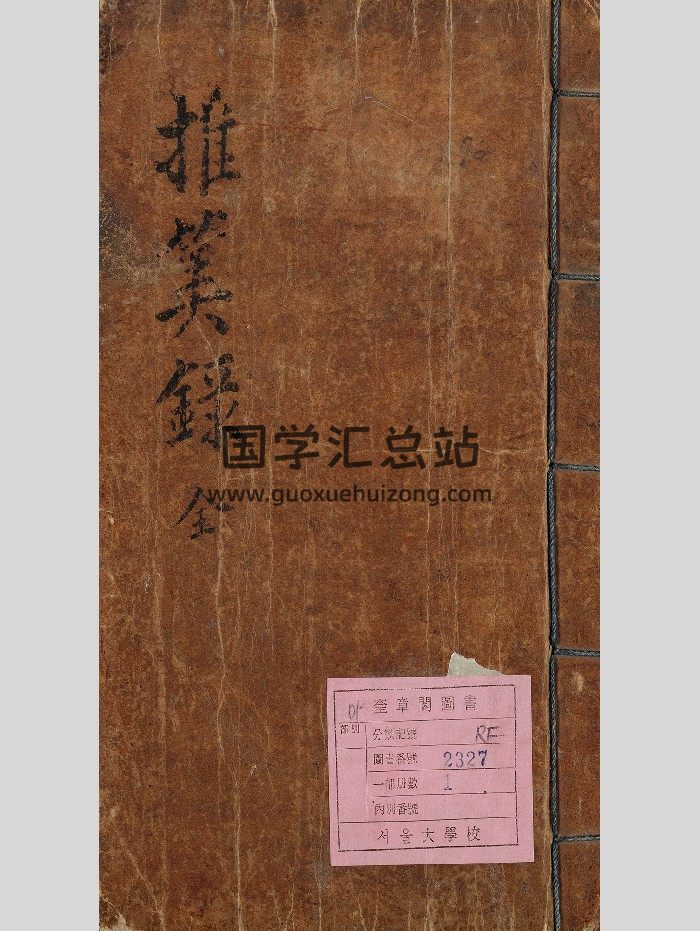 推筭錄 全
国学汇总站
www.guoxuehuizong.com
奎章閣圖書
部別
分類記號 RF
圖書番號 2327
一部冊數 1
內別番號
서울大學校